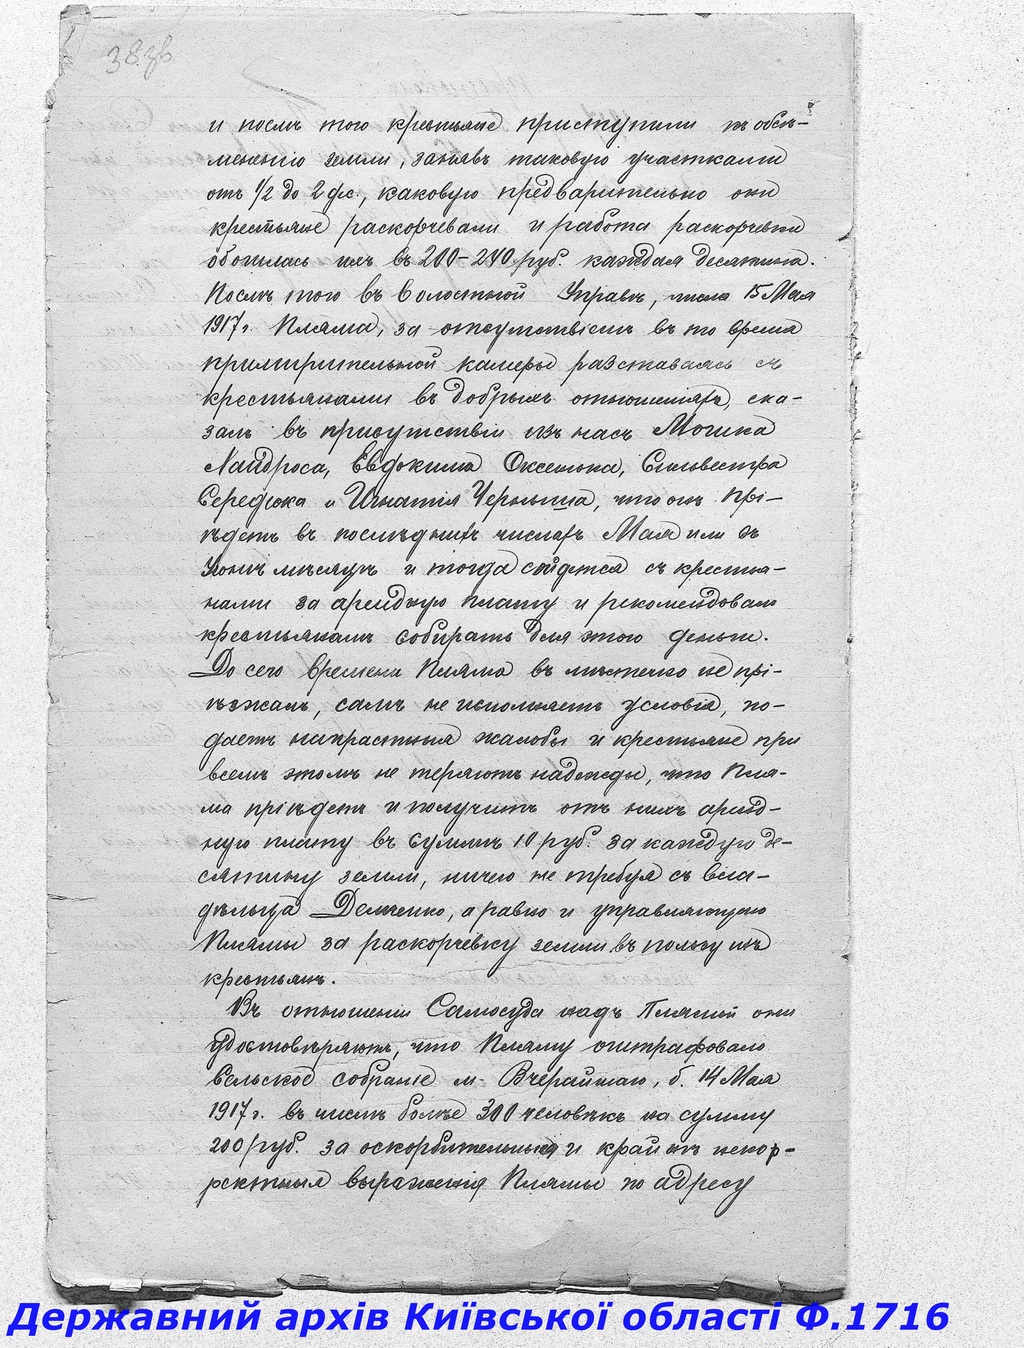 38зв
и послѣ того крестьяне приступили къ обсѣ-
мененію земли, занявъ таковую участками
отъ 1/2 до 2 дес., каковую предварительно они
крестьяне раскорчевали и работа раскорчевки
обошлась имъ въ 200-240 руб. каждая десятина.
Послѣ того въ Волостной Управѣ, числа 15 Мая
1917 г. Пляма, за отсутствіемъ въ то время
примирительной камеры разставаясь съ
крестьянами въ добрыхъ отношеніяхъ, ска-
залъ въ присутствіи изъ насъ Мошка
Найдроса, Евдокима Оксенюка, Сильвестра
Середюка и Игнатія Черныша, что онъ прі-
ѣдетъ въ послѣднихъ числахъ Мая или въ
Іюнѣ мѣсяцѣ и тогда сойдется съ крестья-
нами за арендную плату и рекомендовалъ
крестьянамъ собирать для этого деньги.
До сего времени Пляма въ мѣстечко не прі-
ѣзжалъ, самъ не исполняетъ условія, по-
даетъ напрастныя жалобы и крестьяне при
всемъ этомъ не теряютъ надежды, что Пля-
ма пріѣдетъ и получитъ отъ нихъ аренд-
ную плату въ суммѣ 10 руб. за каждую де-
сятину земли, ничего не требуя съ вла-
дѣльца Демченко, а равно и управляющаго
Плямы за раскорчевку земли въ пользу ихъ
крестьянъ.
Въ отношеніи Самосуда надъ Плямой они
удостовѣряютъ, что Пляму оштрафовало
Сельское собраніе м. Вчерайшаго, б. 14 Мая
1917 г. въ числѣ болѣе 300 человѣкъ на сумму
200 руб. за оскорбительныя и крайнѣ некор-
ректныя выраженія Плямы по адресу
Державний архів Київської області Ф.1716